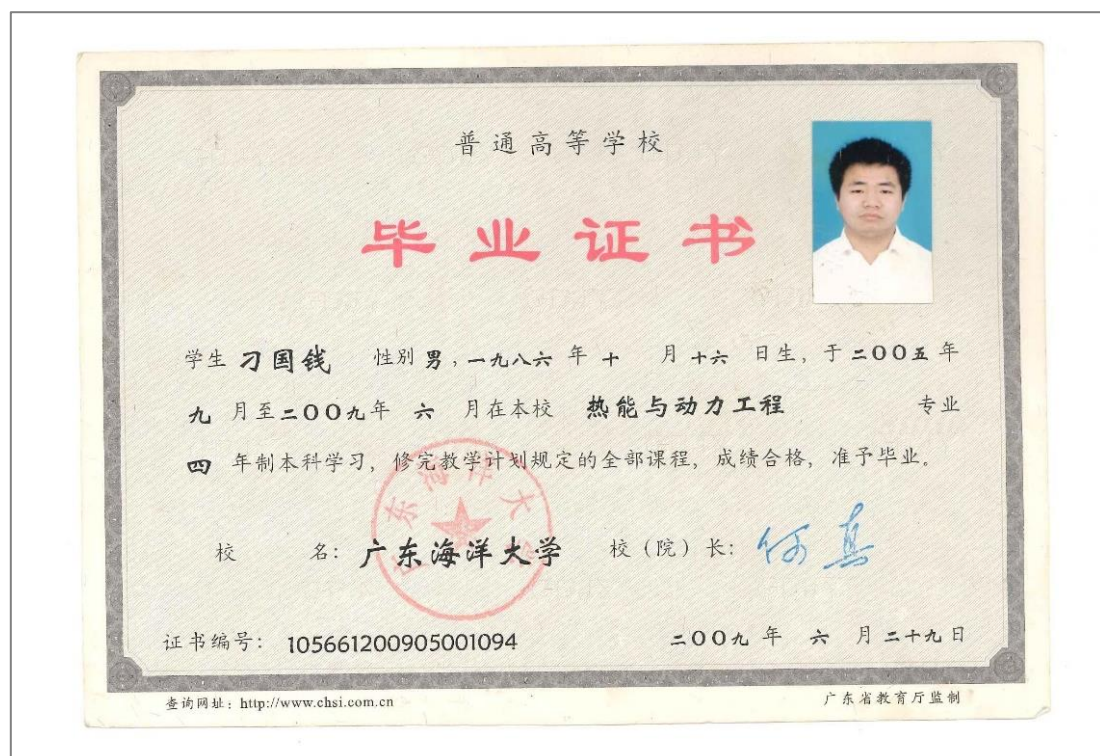 普通高等学校
毕业证书
学生 刁国钱 性别 男，一九八六 年 十 月 十六 日生，于 二〇〇五 年
九 月至 二〇〇九 年 六 月在本校 热能与动力工程 专业
四 年制本科学习，修完教学计划规定的全部课程，成绩合格，准予毕业。
广东海洋大学
校 名：广东海洋大学 校（院）长：何真
证书编号：105661200905001094 二〇〇九 年 六 月 二十九 日
查询网址：http://www.chsi.com.cn 广东省教育厅监制